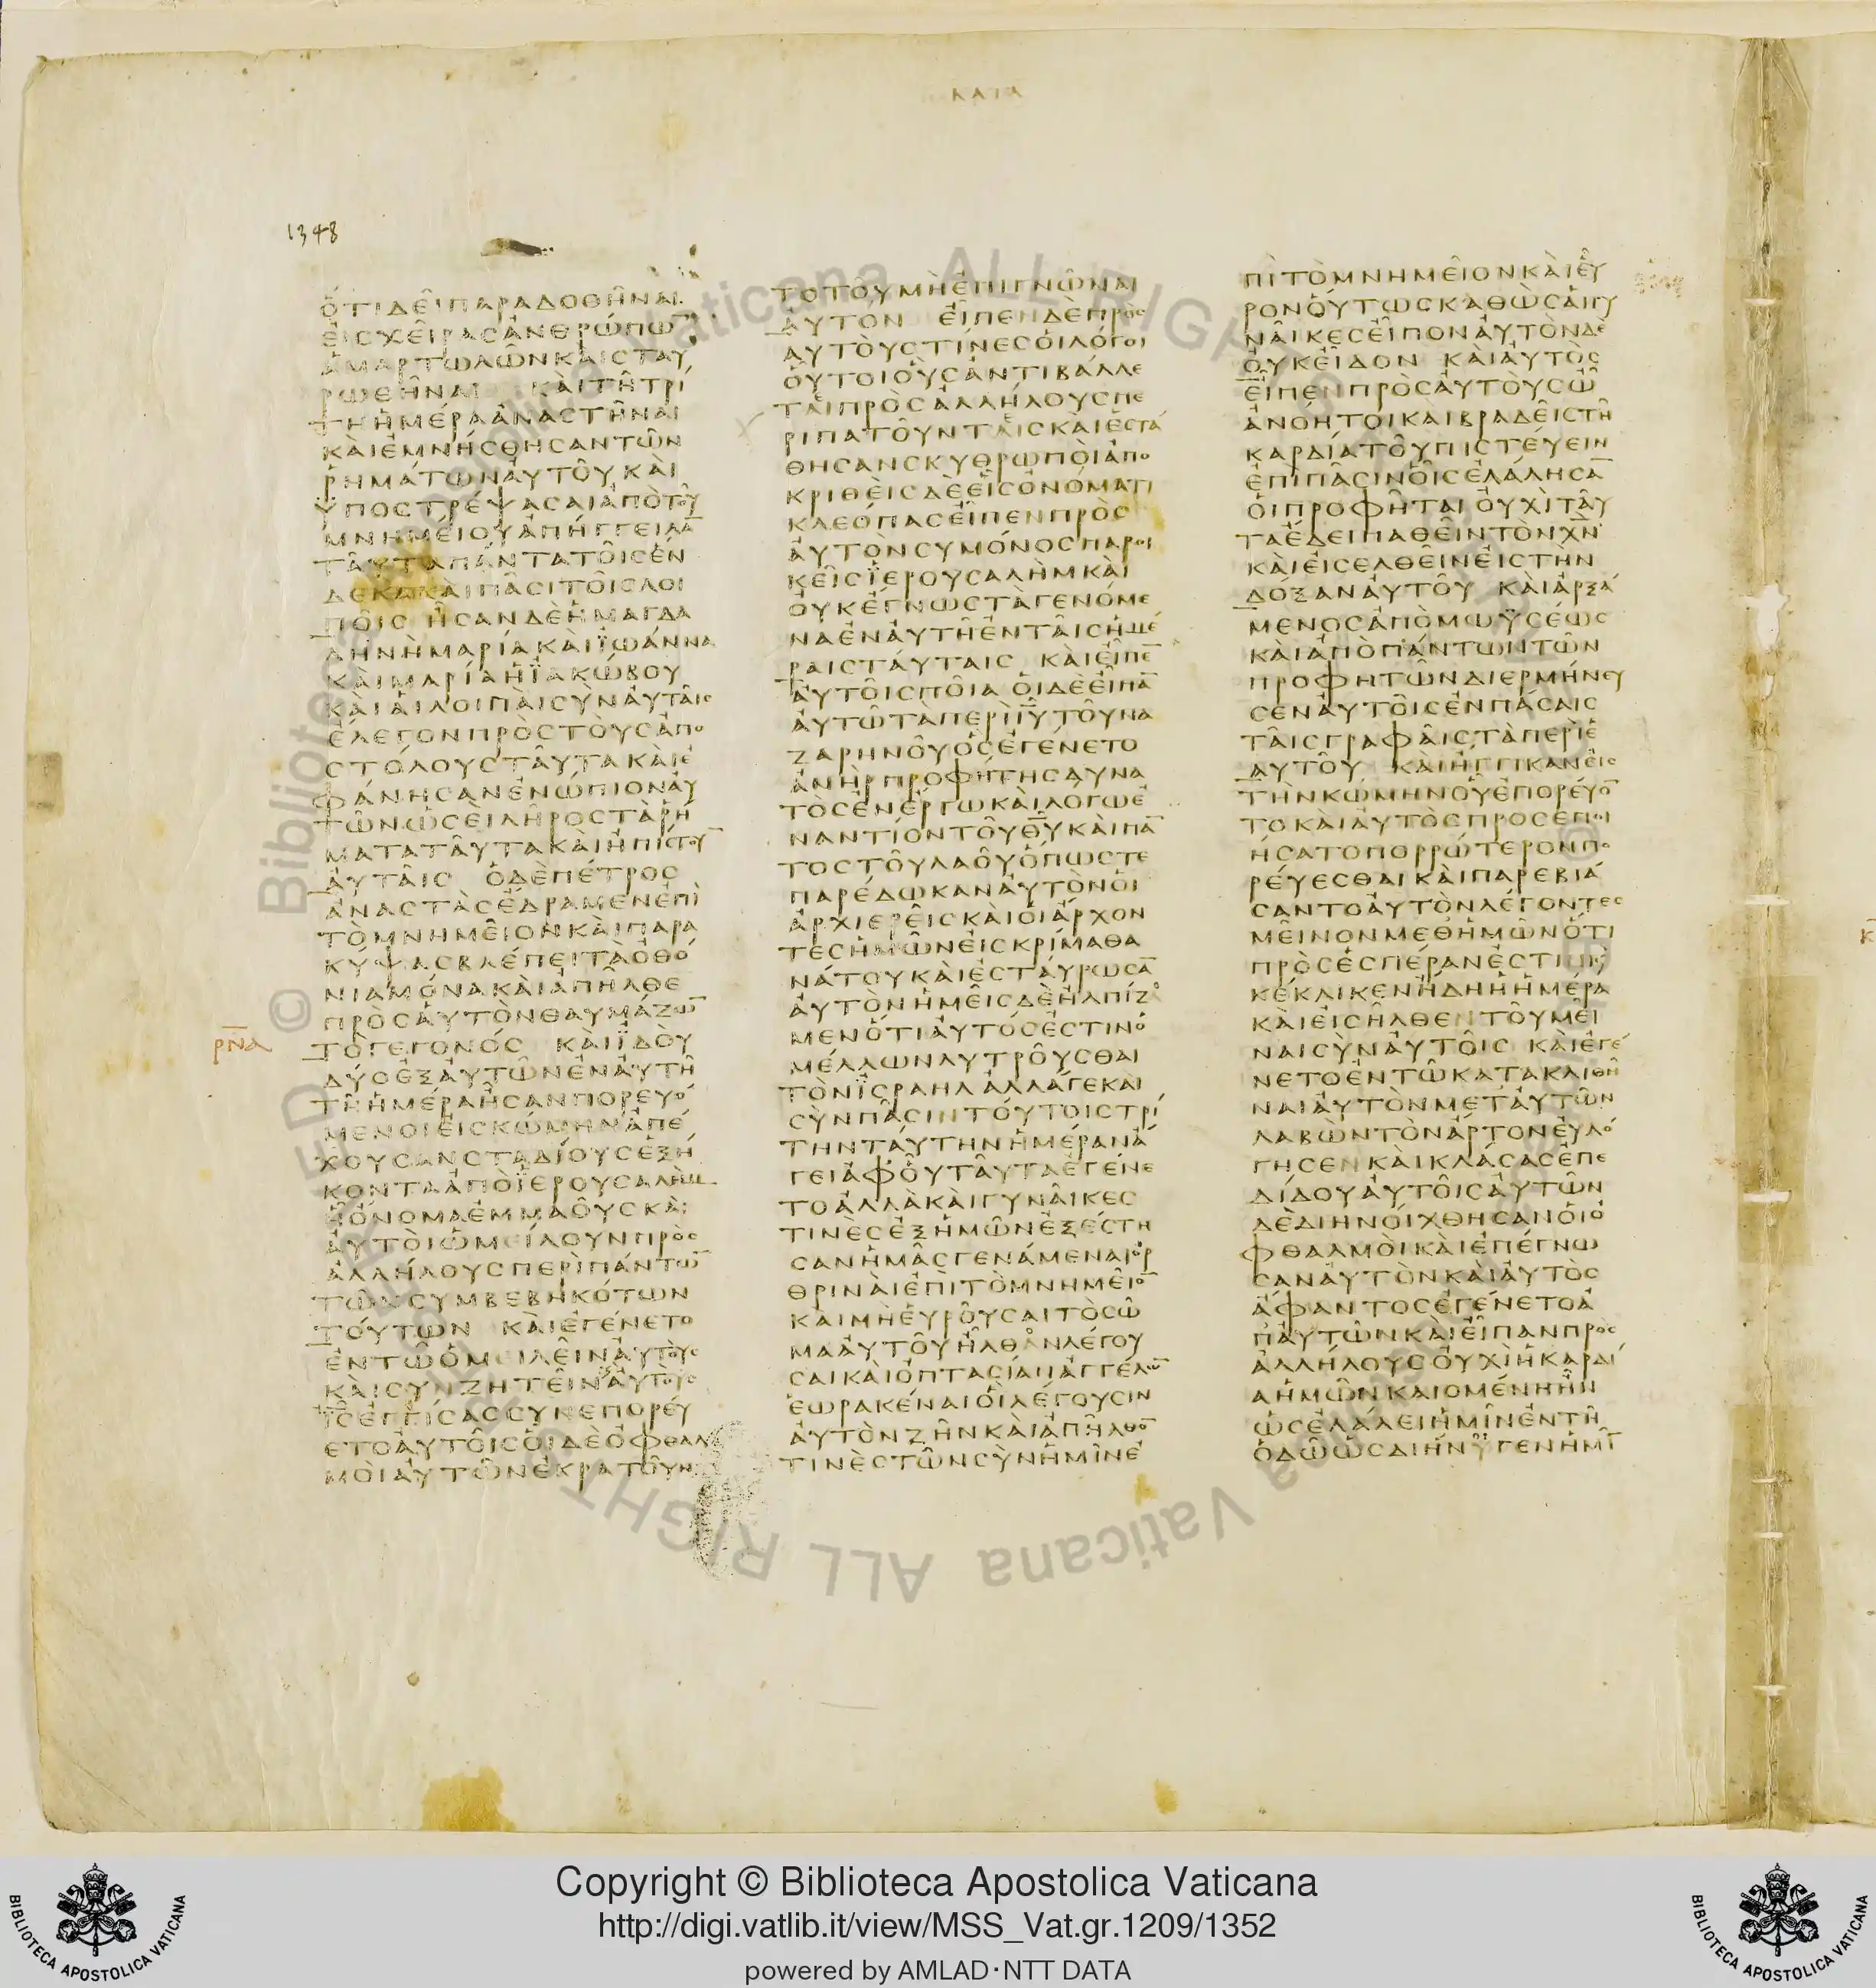 ΚΑΤΑ
1348
ὅτιδεῖπαραδοθῆναι
εἰςχεῖραςἀνθρώπω̅
ἁμαρτωλῶνκαὶσταυ
ρωθῆναι καὶτῆτρί
τηἡμέραἀναστῆναι
καὶἐμνήσθησαντῶν
ῥημάτωναὐτοῦκαὶ
ὑποστρέψασαιἀπὸτοῦ
μνημείουἀπήγγειλα̅
ταῦταπάντατοῖςἕν
δεκακαὶπᾶσιτοῖςλοι
ποῖς ἦσανδὲἡμαγδα
ληνὴμαρίακαὶϊωάννα
καὶμαρίαἡϊακώβου
καὶαἱλοιπαὶσὺναὐταῖς
ἔλεγονπρὸςτοὺςἀπο
στόλουςταῦτακαὶἐ
φάνησανἐνώπιοναὐ
τῶνὡσεὶλῆροςτὰῥή
ματαταῦτακαὶἠπίστου̅
αὐταῖς ὁδὲπέτρος
ἀναστὰςἔδραμενἐπὶ
τὸμνημεῖονκαὶπαρα
κύψαςβλέπειτὰὀθό
νιαμόνακαὶἀπῆλθε
πρὸςαὑτὸνθαυμάζω̅
τὸγεγονός καὶϊδοὺ
δύοἐξαὐτῶνἐναὐτῆ
τῆἡμέραἦσανπορευό
μενοιεἰςκώμηνἀπέ
χουσανσταδίουςἑξή
κονταἀπὸϊερουσαλὴμ
ᾗὄνομαἐμμαοῦςκαὶ
αὐτοὶὡμείλουνπρὸς
ἀλλήλουςπερὶπάντω̅
τῶνσυμβεβηκότων
τούτων καὶἐγένετο
ἐντῷὁμειλεῖναὐτοὺς
καὶσυνζητεῖναὐτοὺς
ι̅ς̅ἐγγίσαςσυνεπορεύ
ετοαὐτοῖςοἱδὲὀφθαλ
μοὶαὐτῶνἐκρατοῦν
ρν̅α
τοτοῦμὴἐπιγνῶναι
αὐτόν εἶπενδὲπρὸς
αὐτοὺςτίνεςοἱλόγοι
οὗτοιοὓςἀντιβάλλε
ταιπρὸςἀλλήλουςπε
ριπατοῦντεςκαὶἐστά
θησανσκυθρωποὶἀπο
κριθεὶςδὲεἷςὀνόματι
κλεόπαςεἶπενπρὸς
αὐτὸνσυμόνοςπαροι
κεῖςϊερουσαλὴμκαὶ
οὐκἔγνωςτὰγενόμε
ναἐναὐτῆἐνταῖςἡμέ
ραιςταύταις καὶεἶπε̅
αὐτοῖςποῖα οἱδὲεἶπα̅
αὐτῶτὰπερὶι̅υ̅τοῦνα
ζαρηνοῦὃςἐγένετο
ἀνὴρπροφήτηςδυνα
τὸςἐνἔργωκαὶλόγωἐ
ναντίοντοῦθ̅υ̅καὶπα̅
τοςτοῦλαοῦὅπωςτε
παρέδωκαναὐτὸνοἱ
ἀρχιερεῖςκαὶοἱἄρχον
τεςἡμῶνεἰςκρίμαθα
νάτουκαὶἐσταύρωσα̅
αὐτὸνἡμεῖςδὲἠλπίζο
μενὅτιαὐτόςἐστινὁ
μέλλωνλυτροῦσθαι
τὸνϊσραηλἀλλάγεκαὶ
σὺνπᾶσιντούτοιςτρί
τηνταύτηνἡμέρανἄ
γειἀφ'οὗταῦταἐγένε
τοἀλλὰκαὶγυναῖκες
τινὲςἐξἡμῶνἐξέστη
σανἡμᾶςγενάμεναιὀρ
θριναὶἐπὶτὸμνημεῖο̅
καὶμὴεὑροῦσαιτὸσῶ
μααὐτοῦἦλθανλέγου
σαικαὶὀπτασίανἀγγέλω̅
ἑωρακέναιοἳλέγουσιν
αὐτὸνζῆνκαὶἀπῆλθο̅
τινὲςτῶνσὺνἡμῖνἐ
πὶτὸμνημεῖονκαὶεὗ
ρονοὕτωςκαθὼςαἱγυ
ναῖκεςεἶποναὐτὸνδὲ
οὐκεἶδον καὶαὐτὸς
εἶπενπρὸςαὐτοὺςὦ
ἀνόητοικαὶβραδεῖςτῆ
καρδίατοῦπιστεύειν
ἐπὶπᾶσινοἷςἐλάλησα̅
οἱπροφῆται οὐχὶταῦ
ταἔδειπαθεῖντὸνχ̅ν̅
καὶεἰσελθεῖνεἰςτὴν
δόξαναὐτοῦ καὶἀρξά
μενοςἀπὸμωϋσέως
καὶἀπὸπάντωντῶν
προφητῶνδιερμήνευ
σεναὐτοῖςἐνπάσαις
ταῖςγραφαῖςτὰπερὶἑ
αυτοῦ καὶἤγγικανεἰς
τὴνκώμηνοὗἐπορεύο̅
τοκαὶαὐτὸςπροσεποι
ήσατοπορρώτερονπο
ρεύεσθαικαὶπαρεβιά
σαντοαὐτὸνλέγοντες
μεῖνονμεθ'ἡμῶνὅτι
πρὸςἑσπέρανἐστὶκαὶ
κέκλικενἤδηἡἡμέρα
καὶεἰσῆλθεντοῦμεῖ
ναισὺναὐτοῖς καὶἐγέ
νετοἐντῶκατακλιθῆ
ναιαὐτὸνμετ'αὐτῶν
λαβὼντὸνἄρτονεὐλό
γησενκαὶκλάσαςἐπε
δίδουαὐτοῖςαὐτῶν
δὲδιηνοίχθησανοἱὀ
φθαλμοὶκαὶἐπέγνω
σαναὐτὸνκαὶαὐτὸς
ἄφαντοςἐγένετοἀ
π'αὐτῶνκαὶεἶπανπρὸς
ἀλλήλουςοὐχὶἡκαρδί
αἡμῶνκαιομένηἦν
ὡςἐλάλειἡμῖνἐντῆ
ὁδῶὡςδιήνυγενἡμῖ̅
Copyright © Biblioteca Apostolica Vaticana
http://digi.vatlib.it/view/MSS_Vat.gr.1209/1352
powered by AMLAD·NTT DATA
BIBLIOTECA APOSTOLICA VATICANA
BIBLIOTECA APOSTOLICA VATICANA